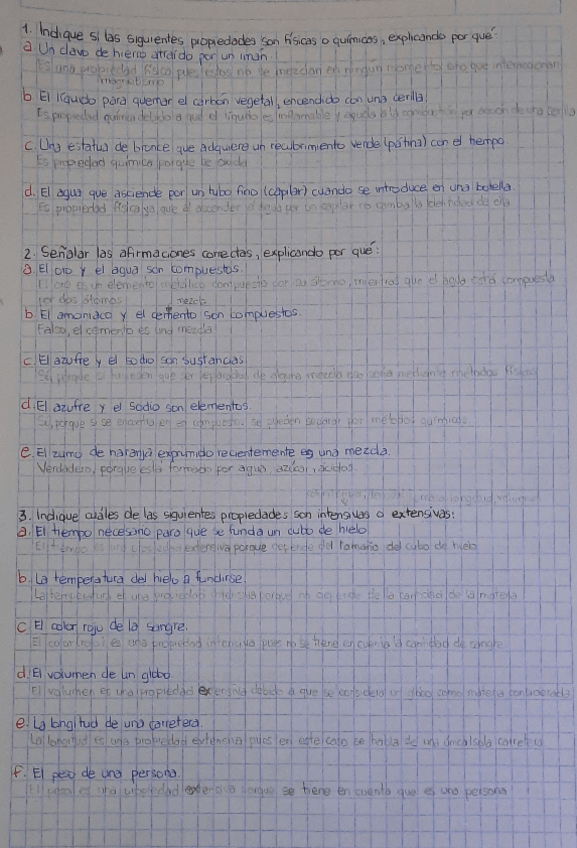 1. Indique si las siguientes propiedades son físicas o químicas, explicando por qué:
a Un clavo de hierro atraído por un imán
Es una propiedad física pues estos no se mezclan en ningún momento sino que interaccionan
magnetismo
b El líquido para quemar el carbón vegetal, encendido con una cerilla.
Es propiedad química debido a que el líquido es inflamable y ayuda a la combustión por acción de una cerilla
c. Una estatua de bronce que adquiere un recubrimiento verde (pátina) con el tiempo
Es propiedad química porque se oxida
d. El agua que asciende por un tubo fino (capilar) cuando se introduce en una botella.
Es propiedad física ya que al ascender el agua por un capilar no cambia la identidad de ella
2. Señalar las afirmaciones correctas, explicando por qué:
a El oro y el agua son compuestos.
El oro es un elemento metálico compuesto por su átomo, mientras que el agua está compuesta
por dos átomos
mezcla
b El amoniaco y el cemento son compuestos.
Falso, el cemento es una mezcla
c. El azufre y el sodio son sustancias
Sí, porque
de alguna mezcla que sería mediante métodos físicos
d. El azufre y el sodio son elementos.
Sí, porque si se encontraran en compuestos se pueden separar por métodos químicos
e. El zumo de naranja exprimido recientemente es una mezcla.
Verdadero, porque está formado por agua, azúcar, ácidos.
longitud, volumen
3. Indique cuáles de las siguientes propiedades son intensivas o extensivas:
a. El tiempo necesario para que se funda un cubo de hielo
El tiempo es una propiedad extensiva porque depende del tamaño del cubo de hielo
b. La temperatura del hielo a fundirse.
La temperatura es una propiedad intensiva porque no depende de la cantidad de la materia
c El color rojo de la sangre.
El color (rojo) es una propiedad intensiva pues no se tiene en cuenta la cantidad de sangre
d. El volumen de un globo
El volumen es una propiedad extensiva debido a que se considera un globo como materia
e. La longitud de una carretera.
La longitud es una propiedad extensiva pues en este caso se habla de una única/sola carretera
f. El peso de una persona.
El peso es una propiedad extensiva porque se tiene en cuenta que es una persona